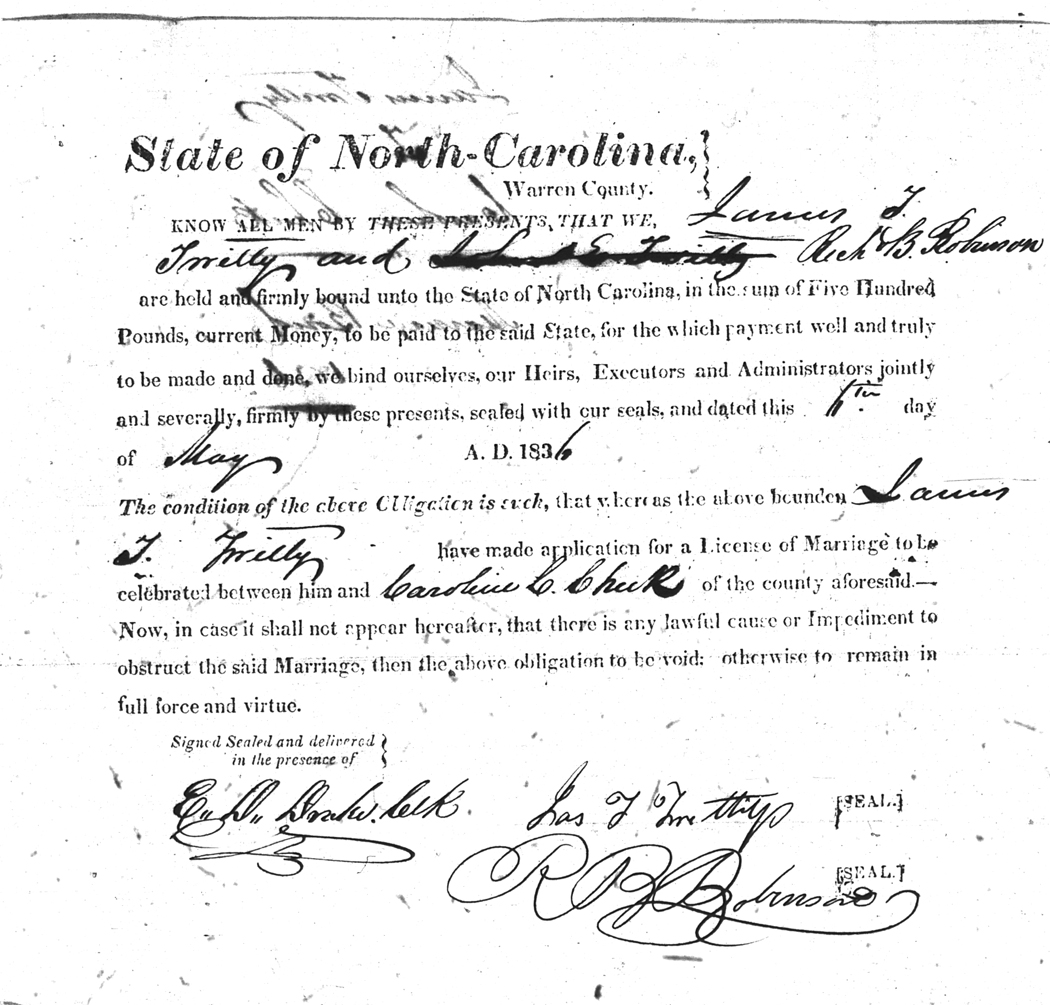 State of North-Carolina,
Warren County.
KNOW ALL MEN BY THESE PRESENTS, THAT WE, James T.
Twitty and Rich'd B. Robinson
are held and firmly bound unto the State of North Carolina, in the sum of Five Hundred
Pounds, current Money, to be paid to the said State, for the which payment well and truly
to be made and done, we bind ourselves, our Heirs, Executors and Administrators jointly
and severally, firmly by these presents, sealed with our seals, and dated this day
of May A. D. 1836
The condition of the above Obligation is such, that whereas the above bounden James
T. Twitty have made application for a License of Marriage to be
celebrated between him and Caroline C. Cheek of the county aforesaid.—
Now, in case it shall not appear hereafter, that there is any lawful cause or Impediment to
obstruct the said Marriage, then the above obligation to be void: otherwise to remain in
full force and virtue.
Signed Sealed and delivered
in the presence of
E. D. Drake. Clk Jas T Twitty [SEAL.]
R B Robinson [SEAL.]